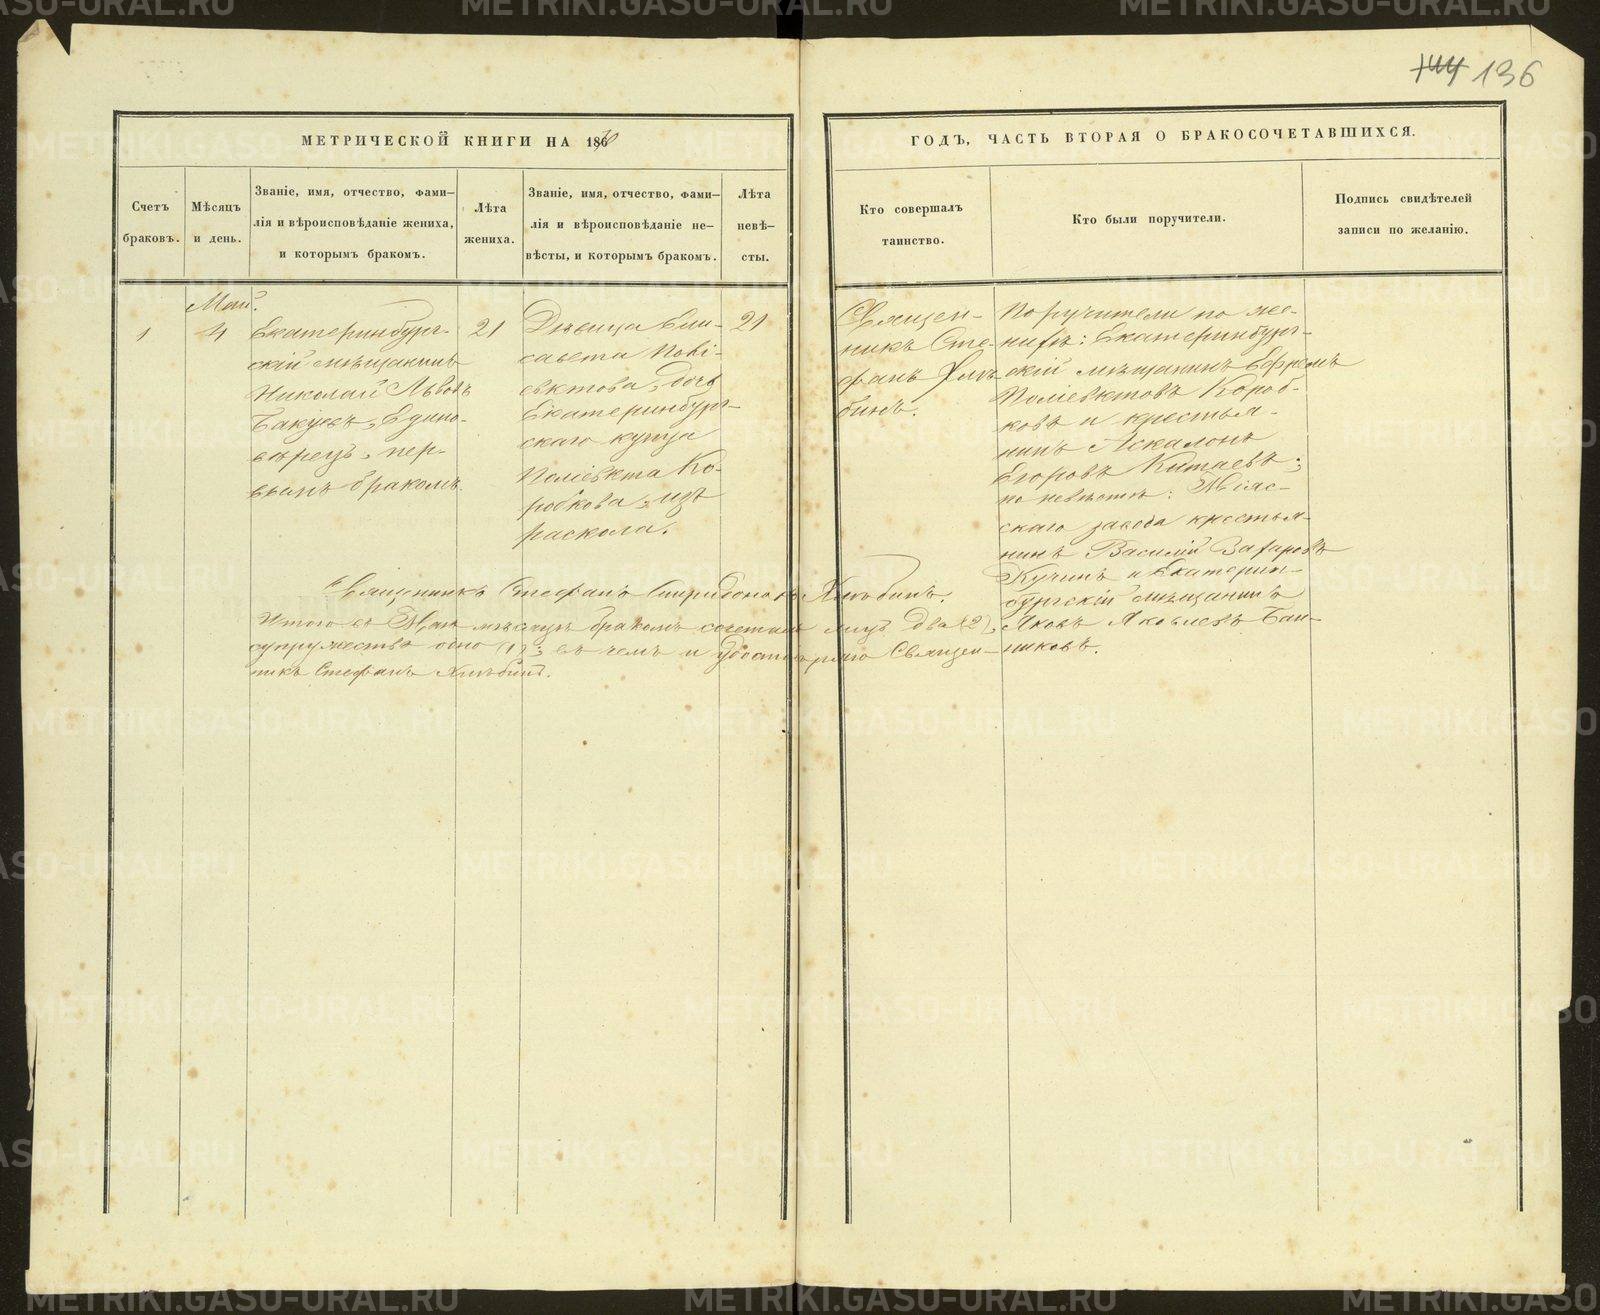 144 136
МЕТРИЧЕСКОЙ КНИГИ НА 1870
ГОДЪ, ЧАСТЬ ВТОРАЯ О БРАКОСОЧЕТАВШИХСЯ.
Счетъ
браковъ.
Мѣсяцъ
и день.
Званіе, имя, отчество, фами-
лія и вѣроисповѣданіе жениха,
и которымъ бракомъ.
Лѣта
жениха.
Званіе, имя, отчество, фами-
лія и вѣроисповѣданіе не-
вѣсты, и которымъ бракомъ.
Лѣта
невѣ-
сты.
Кто совершалъ
таинство.
Кто были поручители.
Подпись свидѣтелей
записи по желанію.
Май.
1
4
Екатеринбург-
скій мѣщанинъ
Николай Львовъ
Бакуевъ, Едино-
вѣрецъ, пер-
вымъ бракомъ.
21
Дѣвица Ели-
савета Полі-
евктова, дочь
Екатеринбург-
скаго купца
Поліевкта Ко-
робкова, изъ
раскола.
21
Священ-
никъ Сте-
фанъ Хлѣ-
бинъ.
Поручители по же-
нихѣ: Екатеринбург-
скій мѣщанинъ Ефремъ
Поліевктовъ Короб-
ковъ и крестья-
нинъ Аскалонъ
Егоровъ Китаевъ;
по невѣстѣ: Міяс-
скаго завода крестья-
нинъ Василій Захаровъ
Кучинъ и Екатерин-
бургскій мѣщанинъ
Яковъ Яковлевъ Бан-
никовъ.
Священникъ Стефанъ Спиридоновъ Хлѣбинъ.
Итого въ Маѣ мѣсяцѣ бракомъ сочетано лицъ два (2),
супружество одно (1); въ чемъ и удостовѣряю Священ-
никъ Стефанъ Хлѣбинъ.
METRIKI.GASO-URAL.RU